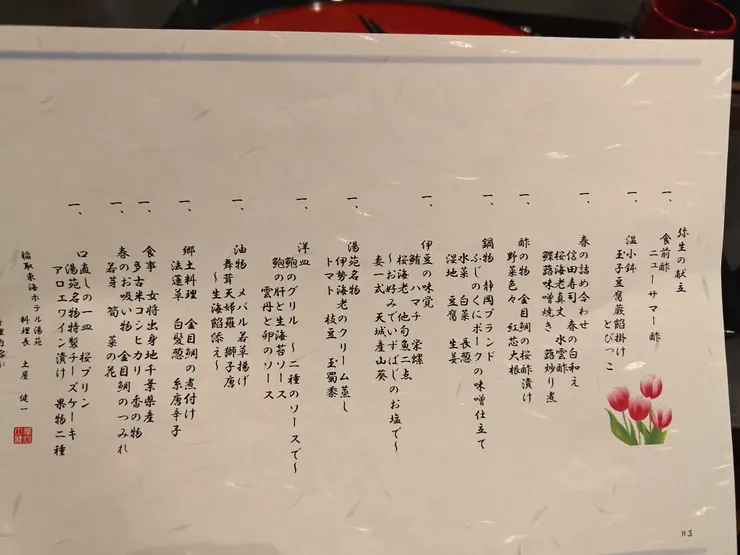 弥生の献立
一、食前酢
ニューサマー酢
一、温小鉢
玉子豆腐蕨餡掛け
とびっこ
一、春の詰め合わせ
信田寿司 春の白和え
桜海老真丈 水雲酢
鰹蕗味噌焼き 蕗炒り煮
一、酢の物 金目鯛の桜酢漬け
野菜色々 紅芯大根
一、鍋物 静岡ブランド
ふじのくにポークの味噌仕立て
水菜 白菜 長葱
湿地 豆腐 生姜
一、伊豆の味覚
鮪 ハマチ 栄螺
桜海老 他旬魚二点
〜お好みでいずばじのお塩で〜
妻一式 天城産山葵
一、湯苑名物
伊勢海老のクリーム蒸し
トマト 枝豆 玉蜀黍
一、洋皿
鮑のグリル 〜二種のソースで〜
鮑の肝と生海苔ソース
雲丹と卵のソース
一、油物 メバル若草揚げ
舞茸天婦羅 獅子唐
〜生海餡添え〜
一、郷土料理 金目鯛の煮付け
法蓮草 白髪葱 糸唐辛子
一、食事 女将出身地千葉県産
多古米コシヒカリ 香の物
一、春のお吸い物 金目鯛のつみれ
若芽 筍 菜の花
一、口直しの一皿 桜プリン
湯苑名物特製チーズケーキ
アロエワイン漬け 果物二種
稲取東海ホテル湯苑
料理長 土屋 健一
H3